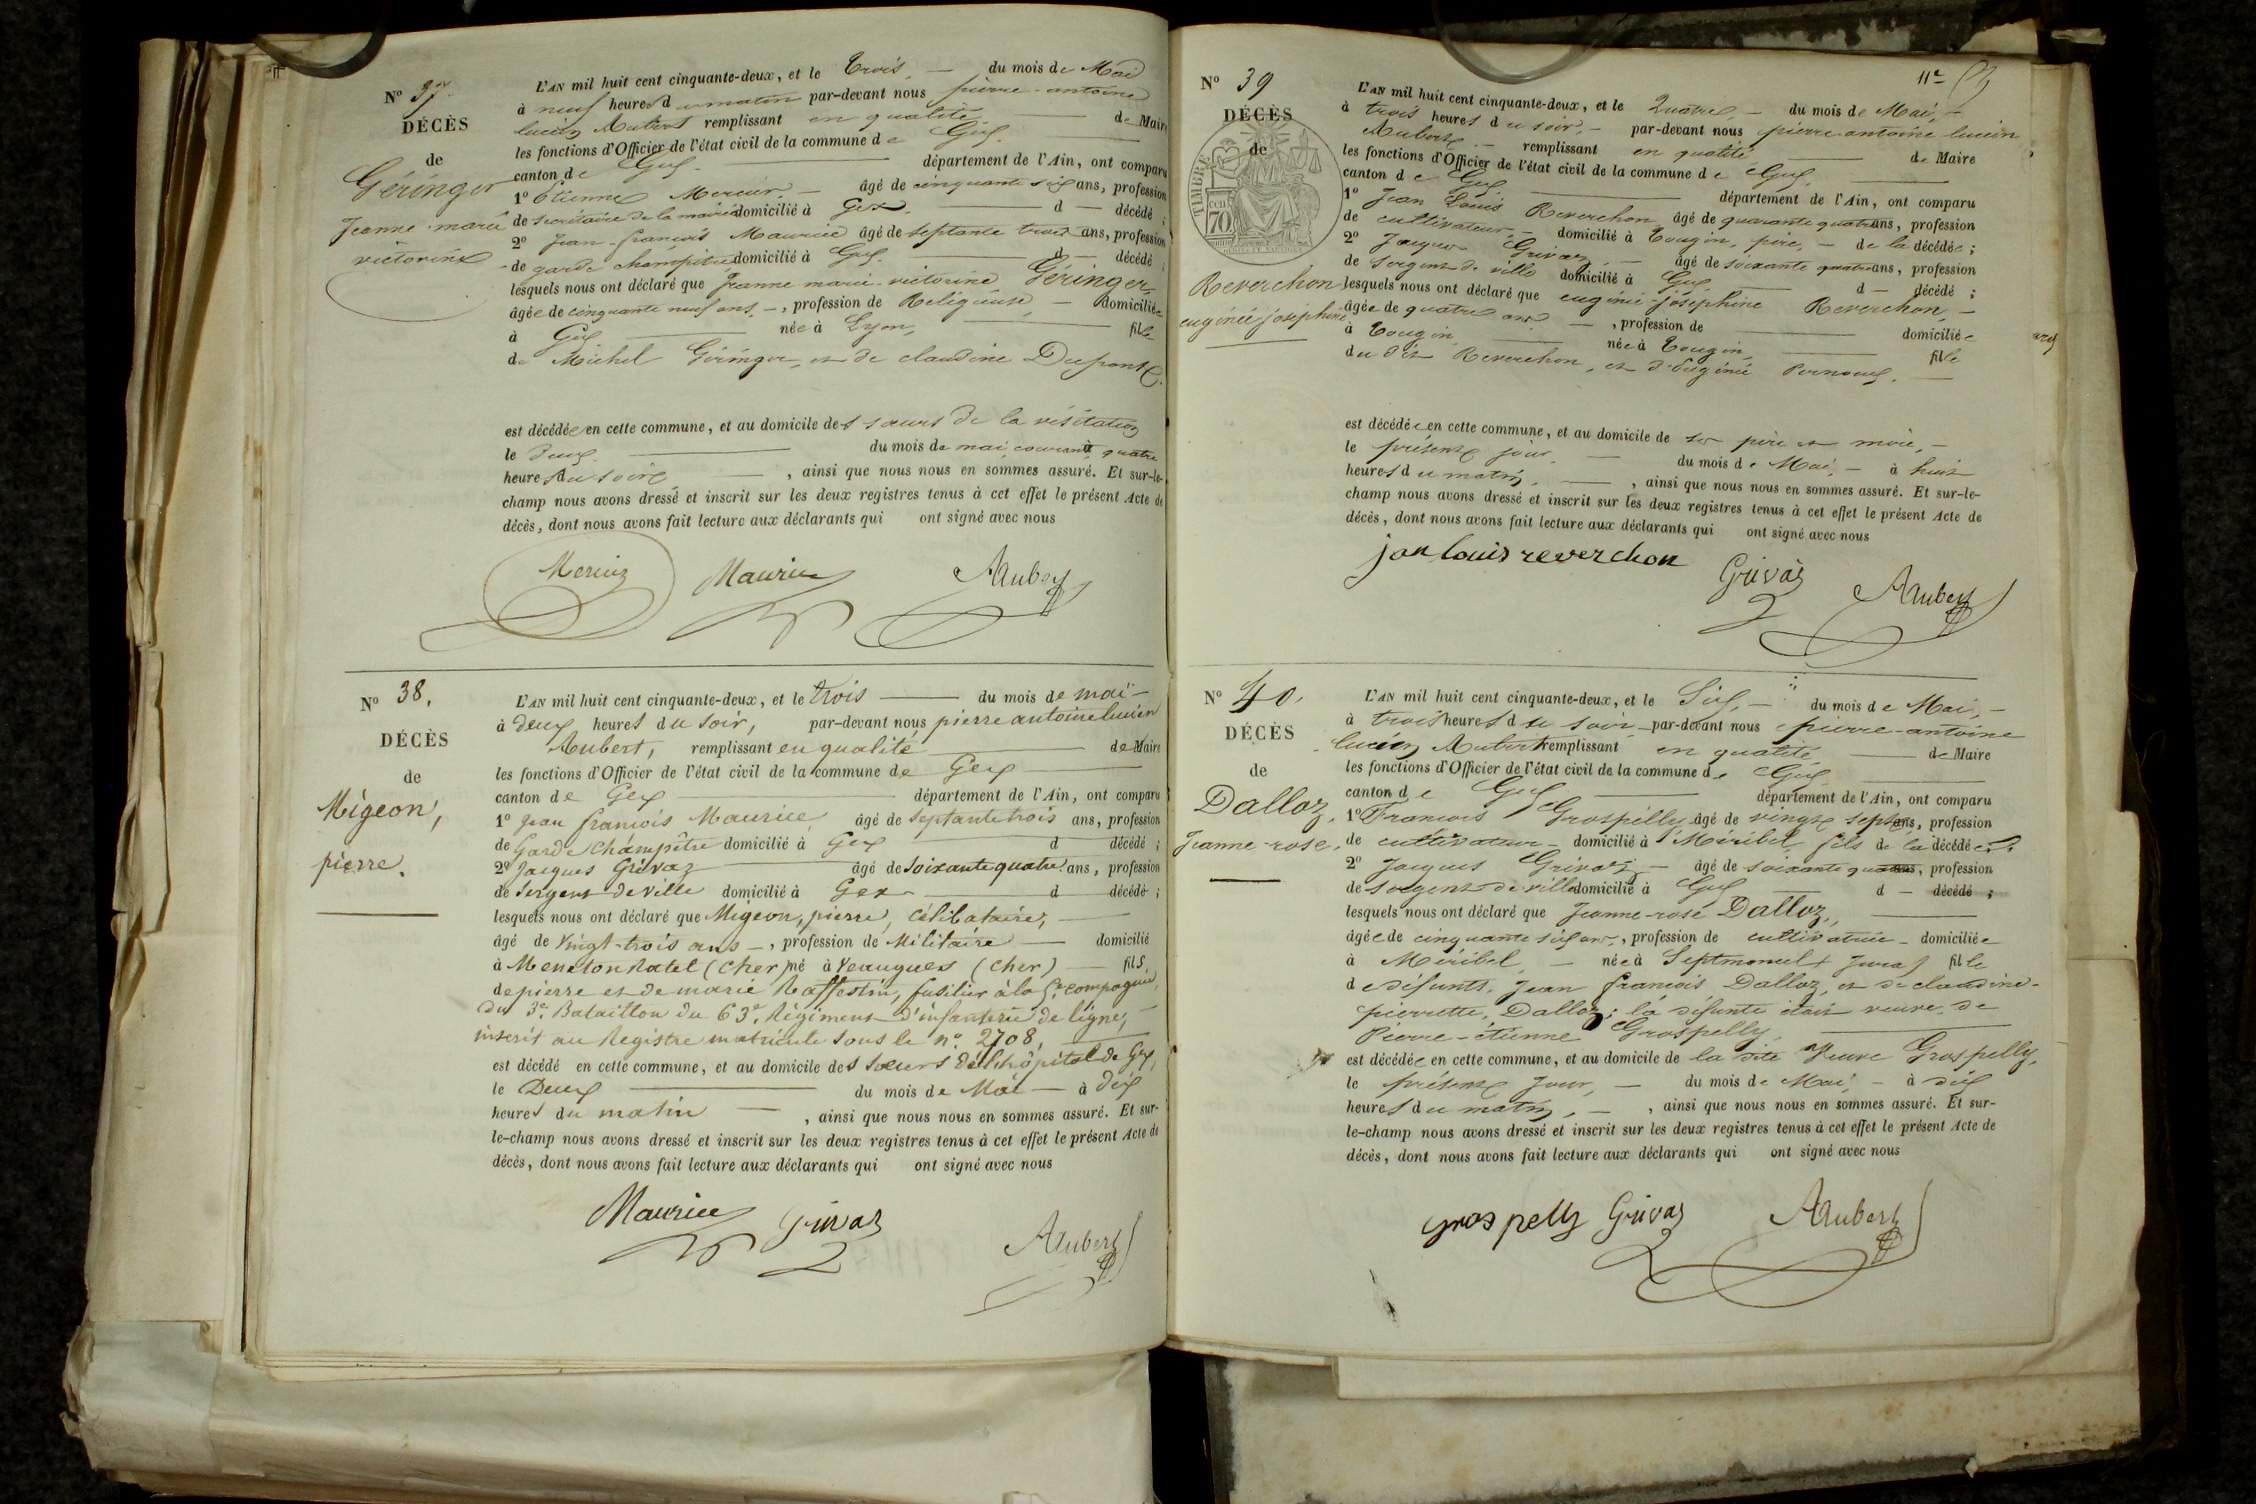 N° 37
DÉCÈS
de
Géringer
Jeanne-marie
victorine
L'AN mil huit cent cinquante-deux, et le trois du mois de Mai
à neuf heures du matin par-devant nous pierre-antoine
lucien Aubert remplissant en qualité de Maire
les fonctions d'Officier de l'état civil de la commune de Gex
canton de Gex département de l'Ain, ont comparu
1° Etienne Mercier âgé de cinquante six ans, profession
de secrétaire de la mairie domicilié à Gex d décédé ;
2° Jean-françois Maurice âgé de septante trois ans, profession
de garde champêtre domicilié à Gex d décédé ;
lesquels nous ont déclaré que Jeanne marie-victorine Géringer,
âgée de cinquante neuf ans, profession de Religieuse domiciliée
à Gex née à Lyon, fille
de Michel Géringer, et de claudine Dupont
est décédée en cette commune, et au domicile des sœurs de la visitation
le deux du mois de mai courant à quatre
heures du soir, ainsi que nous nous en sommes assuré. Et sur-le-
champ nous avons dressé et inscrit sur les deux registres tenus à cet effet le présent Acte de
décès, dont nous avons fait lecture aux déclarants qui ont signé avec nous
Mercier Maurice AAubert
N° 38.
DÉCÈS
de
Migeon,
pierre.
L'AN mil huit cent cinquante-deux, et le trois du mois de mai
à deux heures du soir, par-devant nous pierre antoine lucien
Aubert, remplissant en qualité de Maire
les fonctions d'Officier de l'état civil de la commune de Gex
canton de Gex département de l'Ain, ont comparu
1° Jean françois Maurice âgé de septante trois ans, profession
de Garde champêtre domicilié à Gex d décédé ;
2° Jacques Grivaz âgé de soixante quatre ans, profession
de Sergent de ville domicilié à Gex d décédé ;
lesquels nous ont déclaré que Migeon, pierre, célibataire,
âgé de vingt-trois ans, profession de Militaire domicilié
à Meneton Ratel (Cher) né à Veaugues (Cher) fils
de pierre et de marie Raffestin, fusilier à la 5e compagnie,
du 3e Bataillon du 63e Régiment d'infanterie de ligne,
inscrit au Registre matricule sous le n° 2708,
est décédé en cette commune, et au domicile des Sœurs de l'hôpital de Gex,
le Deux du mois de Mai à dix
heures du matin, ainsi que nous nous en sommes assuré. Et sur-
le-champ nous avons dressé et inscrit sur les deux registres tenus à cet effet le présent Acte de
décès, dont nous avons fait lecture aux déclarants qui ont signé avec nous
Maurice Grivaz AAubert
11e
N° 39
DÉCÈS
de
TIMBRE
70
Reverchon
eugénie josephine
L'AN mil huit cent cinquante-deux, et le Quatre, du mois de Mai,
à trois heures du soir, par-devant nous pierre-antoine lucien
Aubert remplissant en qualité de Maire
les fonctions d'Officier de l'état civil de la commune de Gex
canton de Gex département de l'Ain, ont comparu
1° Jean Louis Reverchon âgé de quarante quatre ans, profession
de cultivateur, domicilié à Tougin, père, de la décédée ;
2° Jacques Grivaz, âgé de soixante quatre ans, profession
de sergent de ville domicilié à Gex d décédé ;
lesquels nous ont déclaré que eugénie-joséphine Reverchon,
âgée de quatre ans, profession de domiciliée
à Tougin née à Tougin, fille
du dit Reverchon, et d'Eugénie Pernoux.
est décédée en cette commune, et au domicile de ses père et mère,
le présent jour, du mois de Mai, à huit
heures du matin, ainsi que nous nous en sommes assuré. Et sur-le-
champ nous avons dressé et inscrit sur les deux registres tenus à cet effet le présent Acte de
décès, dont nous avons fait lecture aux déclarants qui ont signé avec nous
jan louis reverchon Grivaz AAubert
N° 40.
DÉCÈS
de
Dalloz,
Jeanne-rose.
L'AN mil huit cent cinquante-deux, et le Six, du mois de Mai,
à trois heures du soir par-devant nous pierre-antoine
lucien Aubert remplissant en qualité de Maire
les fonctions d'Officier de l'état civil de la commune de Gex
canton de Gex département de l'Ain, ont comparu
1° François Grospelly âgé de vingt sept ans, profession
de cultivateur domicilié à Méribel, fils de la décédée ;
2° Jacques Grivaz âgé de soixante quatre ans, profession
de sergent de ville domicilié à Gex d décédé ;
lesquels nous ont déclaré que Jeanne-rose Dalloz,
âgée de cinquante six ans, profession de cultivatrice domiciliée
à Méribel, née à Septmoncel (Jura) fille
de défunts Jean françois Dalloz, et de claudine-
pierrette Dalloz ; la défunte était veuve de
Pierre-étienne Grospelly,
est décédée en cette commune, et au domicile de la dite Veuve Grospelly,
le présent jour, du mois de Mai, à dix
heures du matin, ainsi que nous nous en sommes assuré. Et sur-
le-champ nous avons dressé et inscrit sur les deux registres tenus à cet effet le présent Acte de
décès, dont nous avons fait lecture aux déclarants qui ont signé avec nous
grospelly Grivaz AAubert